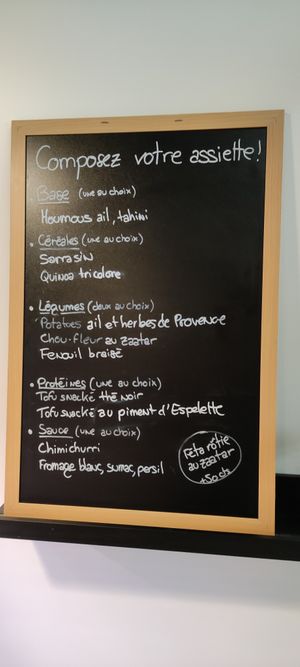 Composez votre assiette!
• Base (une au choix)
Houmous ail, tahini
• Céréales (une au choix)
Sarrasin
Quinoa tricolore
• Légumes (deux au choix)
Potatoes ail et herbes de Provence
Chou-fleur au zaatar
Fenouil braisé
• Protéines (une au choix)
Tofu snacké thé noir
Tofu snacké au piment d'Espelette
• Sauce (une au choix)
Chimichurri
Fromage blanc, sumac, persil
Feta rôtie
au zaatar